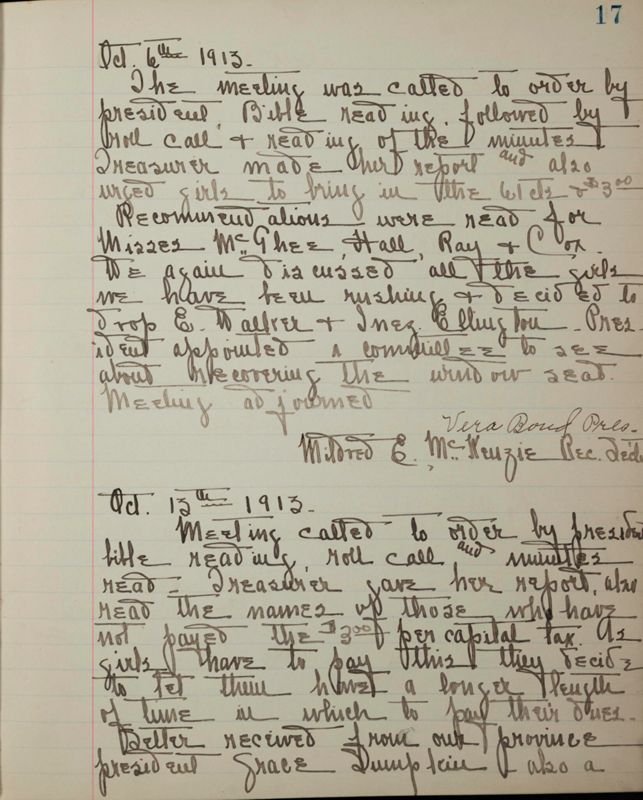 17
Oct. 6th 1913.
The meeting was called to order by
president, Bible reading, followed by
roll call & reading of the minutes
Treasurer made her report and also
urged girls to bring in the $3.00
Recommendations were read for
Misses McGhee, Hall, Ray & Cox.
We again discussed all the girls
we have been rushing & decided to
drop E. Walker & Inez Ellington. Pres-
ident appointed a committee to see
about recovering the window seat.
Meeting adjourned
Vera Bond Pres.
Mildred E. McKenzie Rec. Sec.
Oct. 13th 1913.
Meeting called to order by president
bible reading, roll call and minutes
read. Treasurer gave her report, also
read the names of those who have
not payed the $3.00 per capital tax. As
girls have to pay this they decide
to let them have a longer length
of time in which to pay their dues.
Letter received from our province
president Grace also a